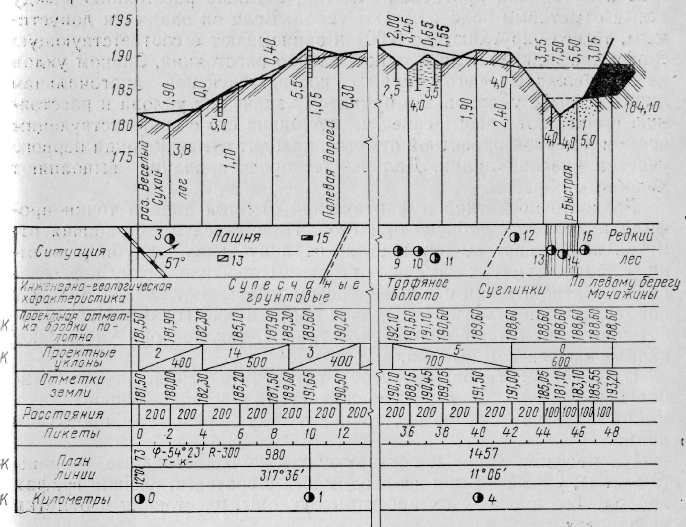 195
190
185
180
175
1,90
0,0
0,40
3,8
3,0
1,10
5,5
1,05
0,30
2,00
3,45
0,65
1,55
2,5
4,0
3,5
1,90
4,0
2,40
3,55
7,50
5,50
3,05
4,0
4,0
1
5,0
184,10
раз. Веселый
Сухой
лог
Полевая дорога
р.Быстрая
Ситуация
3
57°
Пашня
13
15
9
10
11
12
13
14
16
Редкий
лес
Инженерно-геологическая
характеристика
Супесчаные
грунтовые
Торфяное
болото
Суглинки
По левому берегу
Мочажины
Проектная отмет-
ка бровки по-
лотна
181,50 181,90 182,30 185,10 187,90 189,30 189,60 190,20 192,10 191,60 191,10 190,60 189,60 188,60 188,60 188,60 188,60 188,60 188,60
Проектные
уклоны
2 400 14 500 3 400 5 700 0 600
Отметки
земли
181,50 180,00 182,30 185,20 187,50 189,60 191,65 190,50 190,10 188,15 190,45 189,05 191,50 191,00 185,05 181,10 183,10 185,55 193,20
Расстояния
200 200 200 200 200 200 200 200 200 200 200 200 100 100 100 100
Пикеты
0 2 4 6 8 10 12 36 38 40 42 44 46 48
План
линии
73
12°01'
φ-54°23' R-300
т- к-
980
317°36'
1457
11°06'
Километры
0
1
4